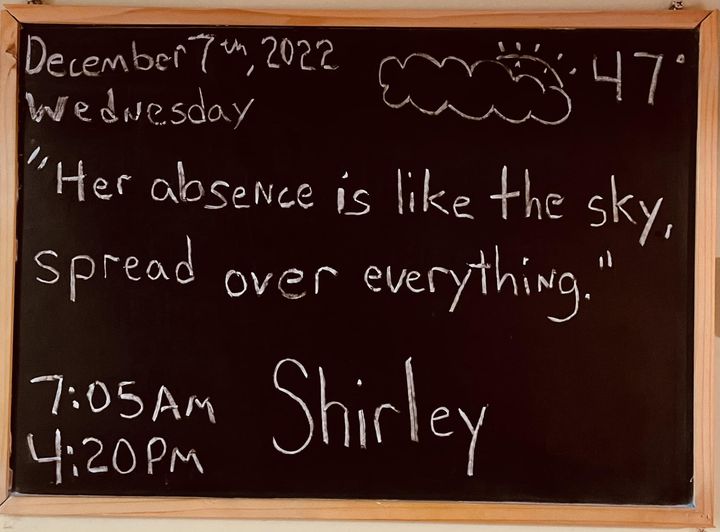 December 7th, 2022
47°
Wednesday
"Her absence is like the sky,
spread over everything."
7:05AM
4:20PM
Shirley